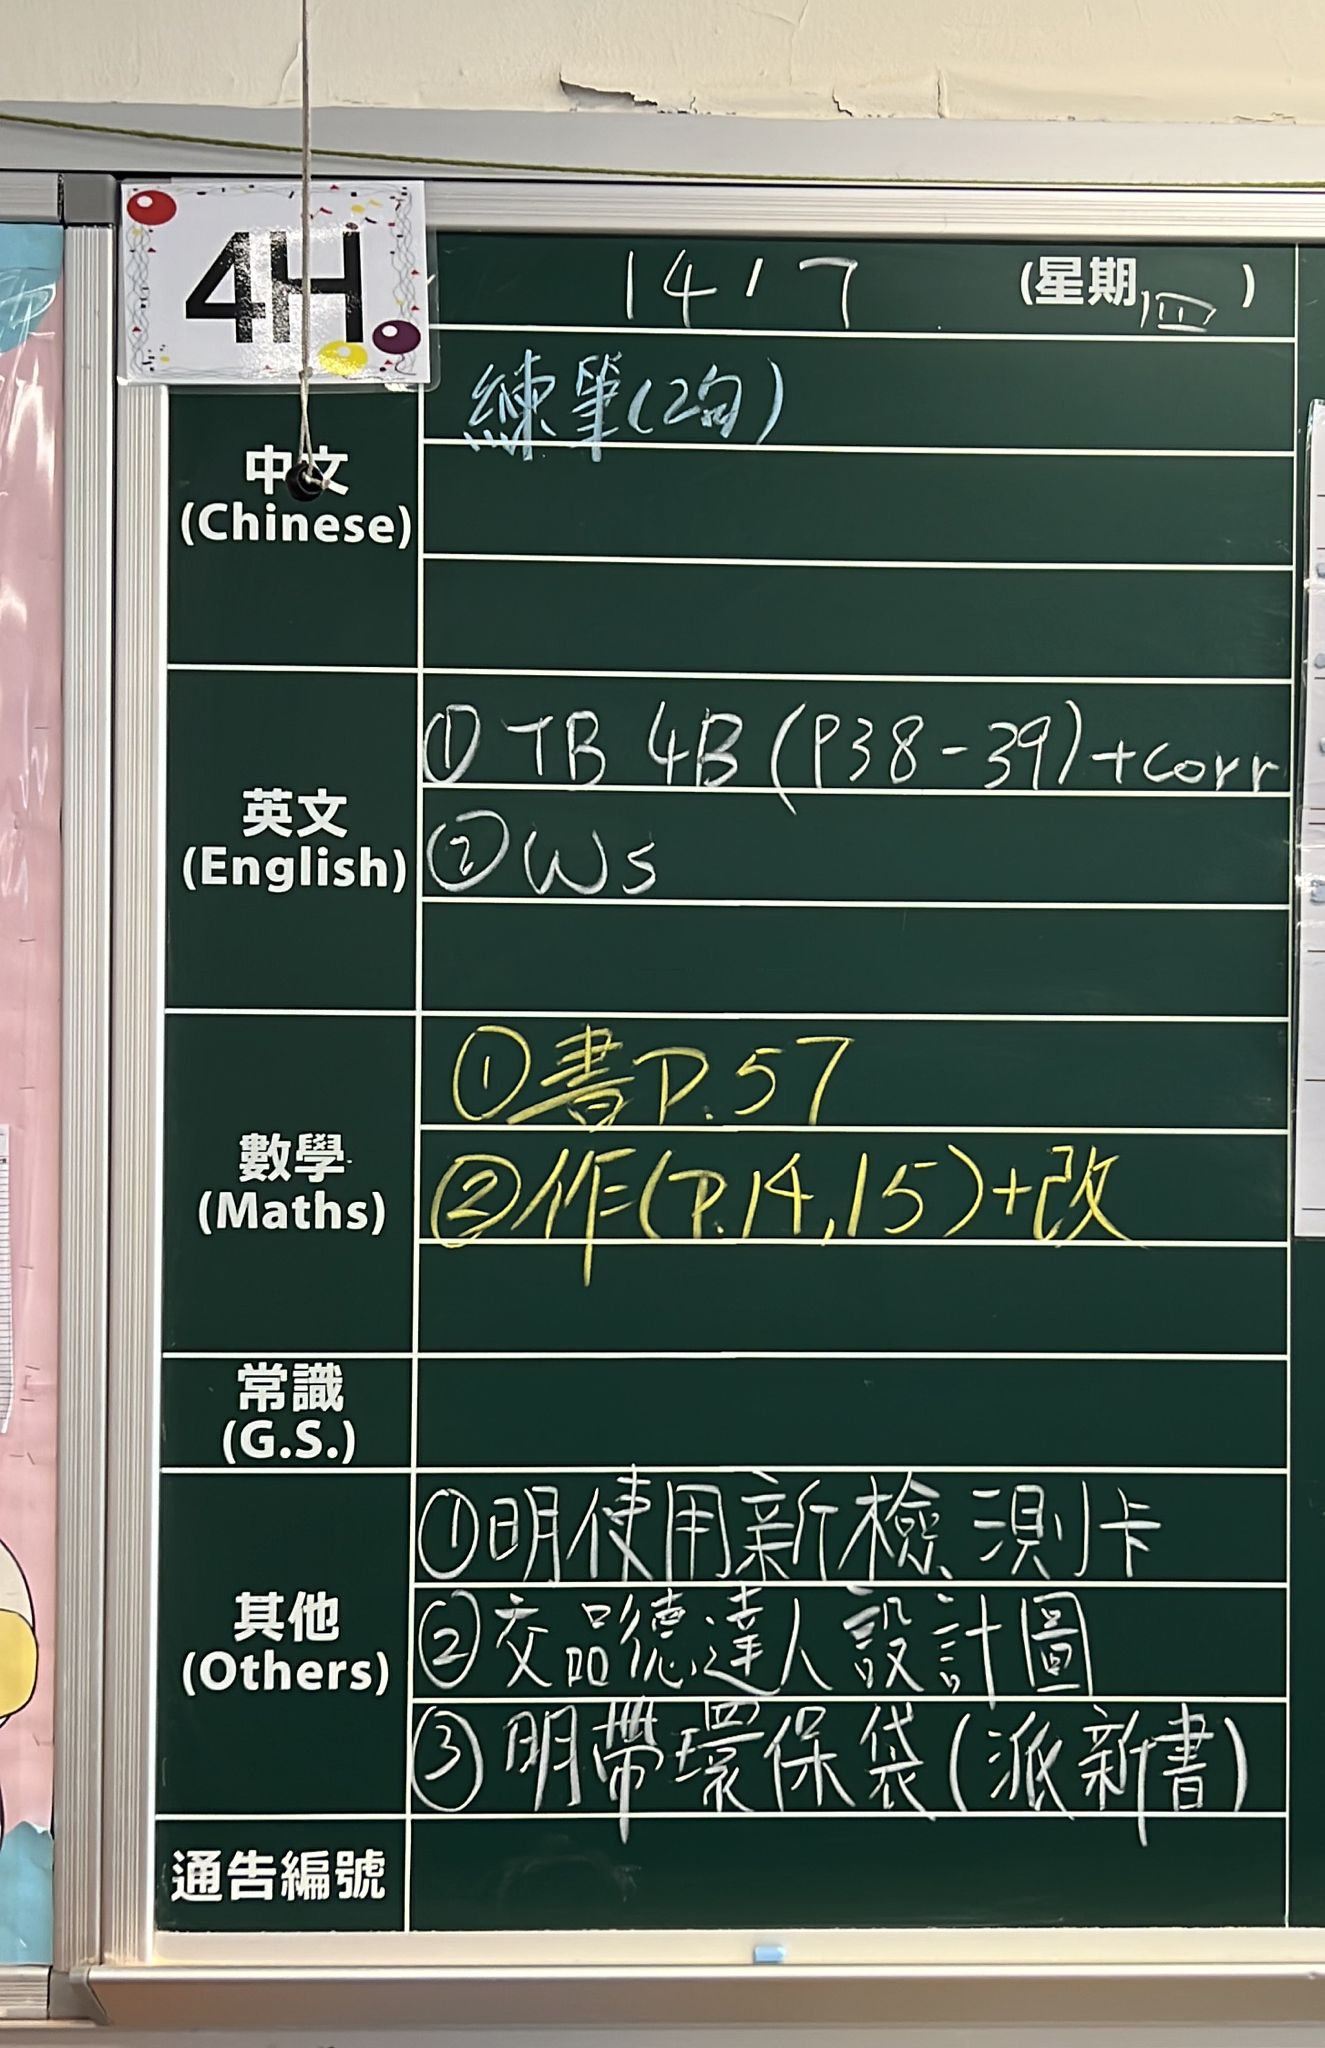 4H
14/7 (星期四)
中文
(Chinese)
練筆(2句)
英文
(English)
① TB 4B (P38-39)+corr
② WS
數學
(Maths)
①書P.57
②作(P.14,15)+改
常識
(G.S.)
其他
(Others)
①明使用新檢測卡
②交品德達人設計圖
③明帶環保袋(派新書)
通告編號